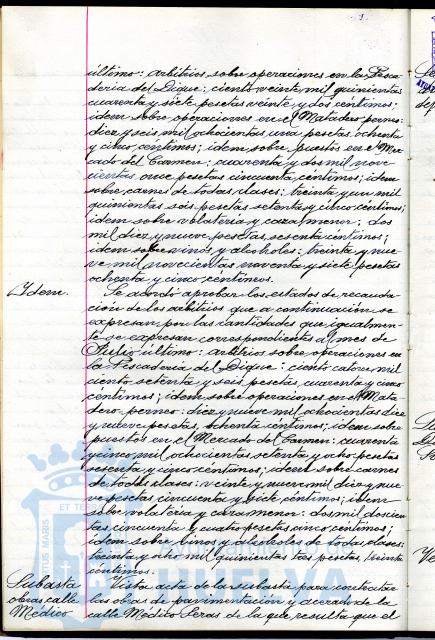 último: arbitrios sobre operaciones en la Pesca-
dería del Dique: ciento veinte mil quinientas
cuarenta y siete pesetas veinte y dos céntimos;
idem sobre operaciones en el Matadero perneo:
diez y seis mil ochocientas una pesetas ochenta
y cinco céntimos; idem sobre puestos en el Mer-
cado del Carmen: cuarenta y dos mil nove-
cientas once pesetas cincuenta céntimos; idem
sobre carnes de todas clases: treinta y un mil
quinientas seis pesetas setenta y cinco céntimos;
idem sobre volatería y caza menor: dos
mil diez y nueve pesetas, sesenta céntimos;
idem sobre vinos y alcoholes: treinta y nue-
ve mil novecientas noventa y siete pesetas
ochenta y cinco céntimos.
Idem.
Se acordó aprobar los estados de recauda-
ción de los arbitrios que a continuación se
expresan, por las cantidades que igualmen-
te se expresan correspondientes al mes de
Julio último: arbitrios sobre operaciones en
la Pescadería del Dique: ciento catorce mil
ciento setenta y seis pesetas cuarenta y cinco
céntimos; idem sobre operaciones en el Mata-
dero perneo: diez y nueve mil ochocientas diez
y nueve pesetas, ochenta céntimos; idem sobre
puestos en el Mercado del Carmen: cuarenta
y cinco mil ochocientas setenta y ocho pesetas
sesenta y cinco céntimos; idem sobre carnes
de todas clases: veinte y nueve mil diez y nue-
ve pesetas cincuenta y siete céntimos; idem
sobre volatería y caza menor: dos mil doscien-
tas cincuenta y cuatro pesetas cinco céntimos;
idem sobre vinos y alcoholes de todas clases:
treinta y seis mil quinientas tres pesetas, veinte
céntimos.
Subasta
obras calle
Médico
Vista acta de la subasta para contratar
las obras de pavimentación y acerado de la
calle Médico Seras de la que resulta que el